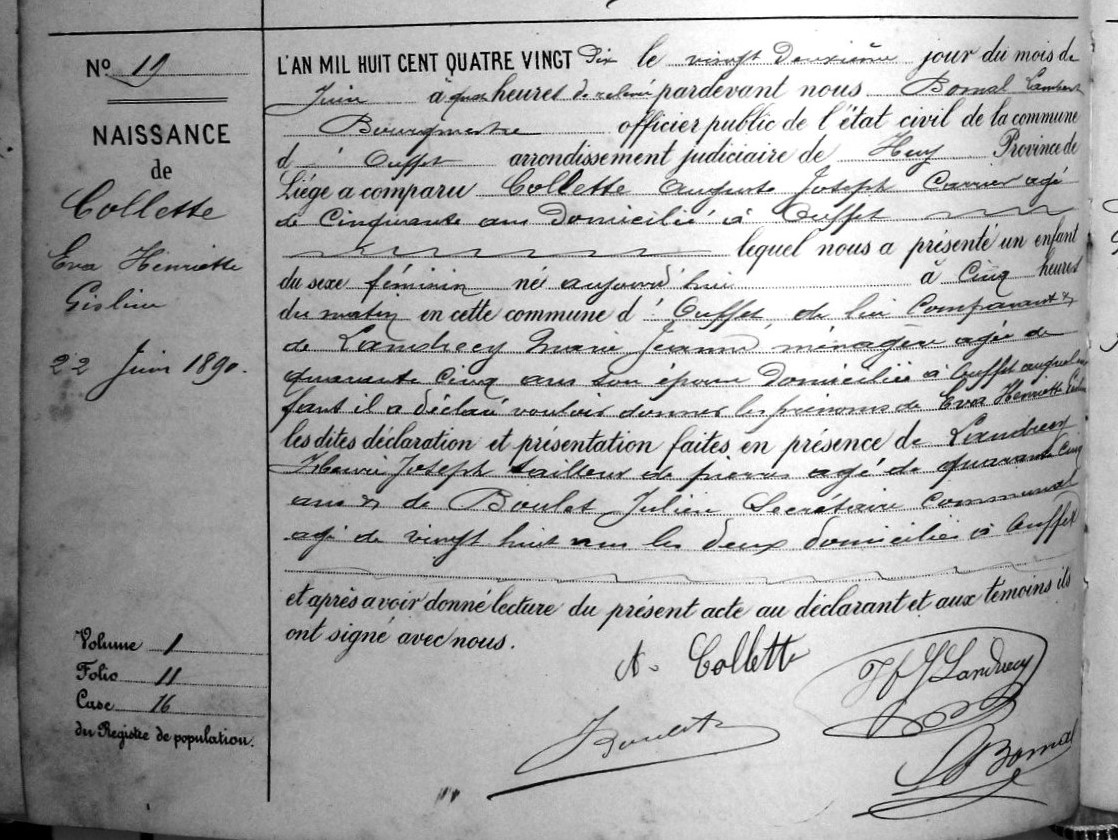 No 19
NAISSANCE
de
Collette
Eva Henriette
Gisline
22 Juin 1890.
Volume 1
Folio 11
Case 16
du Registre de population.
L'AN MIL HUIT CENT QUATRE VINGT Dix le vingt Deuxième jour du mois de
Juin à heures de relevé pardevant nous Bomal Lambert
Bourgmestre officier public de l'état civil de la commune
d' Ouffet arrondissement judiciaire de Huy Province de
Liége a comparu Collette Auguste Joseph Carrier agé
de Cinquante ans Domicilié à Ouffet
lequel nous a présenté un enfant
du sexe féminin né aujourd'hui à Cinq heures
du matin en cette commune d' Ouffet, de lui Comparant &
de Landrecy Marie Jeanne, ménagère agée de
quarante cinq ans son épouse Domiciliée à Ouffet auquel en
fant il a déclaré vouloir donner les prénoms de Eva Henriette
les dites déclaration et présentation faites en présence de Landrecy
Henri Joseph tailleur de pierres agé de quarante cinq
ans & de Boulet Julien Secrétaire Communal
agé de vingt huit ans les deux domiciliés à Ouffet
et après avoir donné lecture du présent acte au déclarant et aux témoins ils
ont signé avec nous.
A. Collette
H J Landrecy
J Boulet
L Bomal